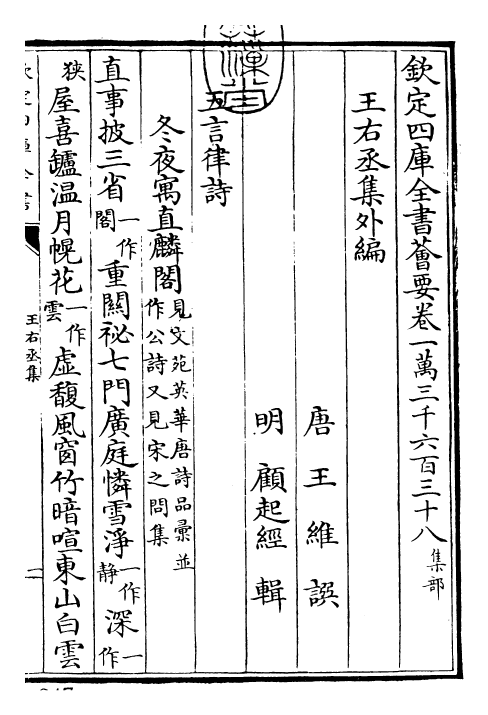 欽定四庫全書薈要卷一萬三千六百三十八集部
王右丞集外編
唐王維譔
明顧起經輯
五言律詩
冬夜寓直麟閣見文苑英華唐詩品彙並作公詩又見宋之問集
直事披三省一作閣重關祕七門廣庭憐雪淨一作靜深一作
狹屋喜鑪温月幌花一作雲虛馥風窗竹暗喧東山白雲
王右丞集
一